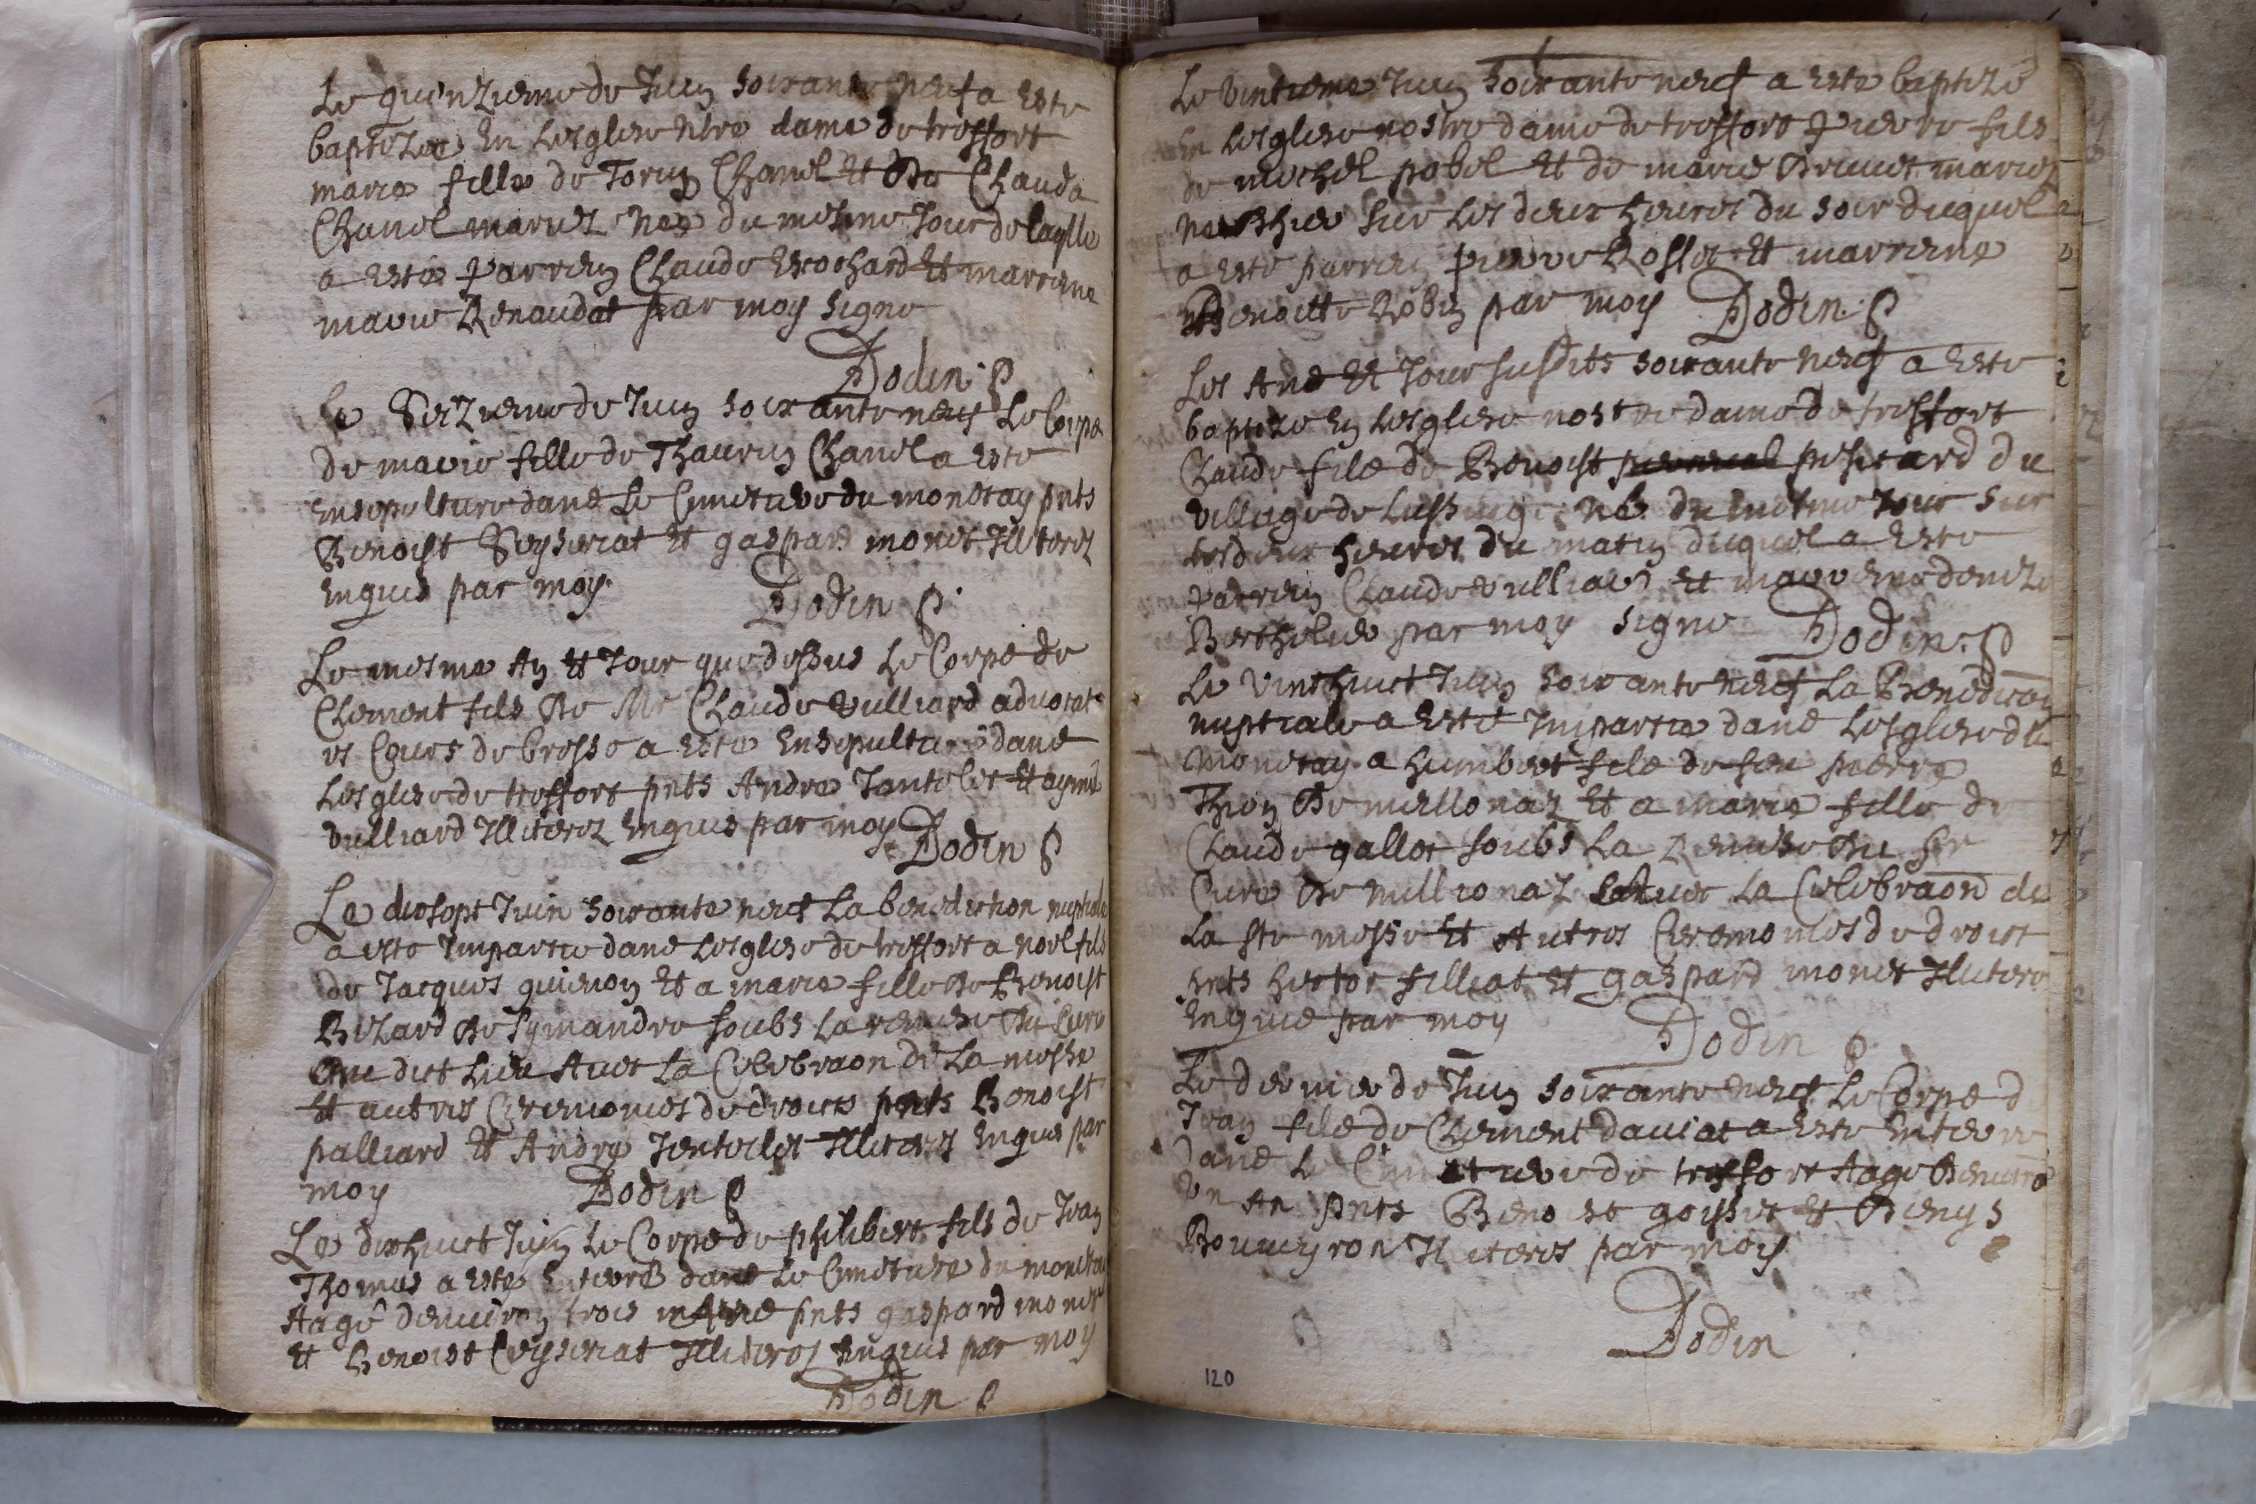 Le quinzieme de Juin soixante neuf a este
baptizee En Lesglese Nre dame de treffort
marie fille de Torin Chanel Et De Clauda
Chanel mariez Nee du mesme Jour de laqlle
a esté parrein Claude Escochard Et marreine
marie Renaudat par moy signe
Dodin
Le Seizieme de Juin soixante neuf Le Corps
de marie fille de Thaurin Chanel a este
Ensepulture dans Le Cimetiere du monetay pnts
Benoist Seyseriat Et gaspard monet Illiterez
Enquis par moy
Dodin
Le mesme An Et Jour que dessus Le Corps de
Clement fils De Mr Claude vulliard advocat
es Cours de bresse a este Ensepulture dans
Lesglese de treffort pnts Andre Tantelet Et ayme
vulliard Illiterez Enquis par moy
Dodin
Le diesept Juin soixante neuf La benediction nuptiale
a este Impartie dans Lesglese de treffort a noel fils
de Jacques guienon Et a marie fille De Benoist
Bizard De symandre soubs La remise Du Cure
Du dict Lieu Avec La Celebraon de La messe
Et autres Ceremonies de droicts pnts Benoist
palliard Et Andre Tentelet Illiterez Enquis par
moy
Dodin
Le dixhuict Juin Le Corps de philibert fils de Jean
Thomas a este Enterré dans Le Cimetiere du monetay
Aagé denviron trois pnts gaspard monet
Et Benoist Ceyseriat Illiterez Enquis par moy
Dodin
Le vintieme Juin soixante neuf a este baptizé
En Lesglese nostre dame de treffort pierre fils
de michel pobel Et de marie Brunet mariez
né hier sur Les deux heures du soir duquel
a esté parrein pierre Rosset Et marreine
Benoitte Robin par moy Dodin
Les An Et Jour susdits soixante neuf a este
baptize En Lesglese nostre dame de treffort
Claude fils de Benoist du
village de Né du mesme Jour sur
Les deux heures du matin duquel a Este
parrein Claude vulliard Et marreine denize
Berthelier par moy signe Dodin
Le vinthuict Juin soixante neuf La Benediction
nuptiale a esté Impartie dans Lesglese du
monetay a humbert fils de feu pierre
Thion De millionaz Et a marie fille de
Claude gallet soubs La Remise Du Sr
Cure De millionaz Avec La Celebraon de
La ste messe Et Autres Ceremonies de droict
pnts hector filliat Et gaspard monet Illitere
Enquis par moy
Dodin
Le dernier de Juin soixante neuf Le Corps d
Jean fils de Clement daviat a Este Enterre
dans Le Cimetiere de treffort Aage Denviro
Un An pnts Benoist goisset Et Denys
Bouveyron Iliteres par moy
Dodin
120